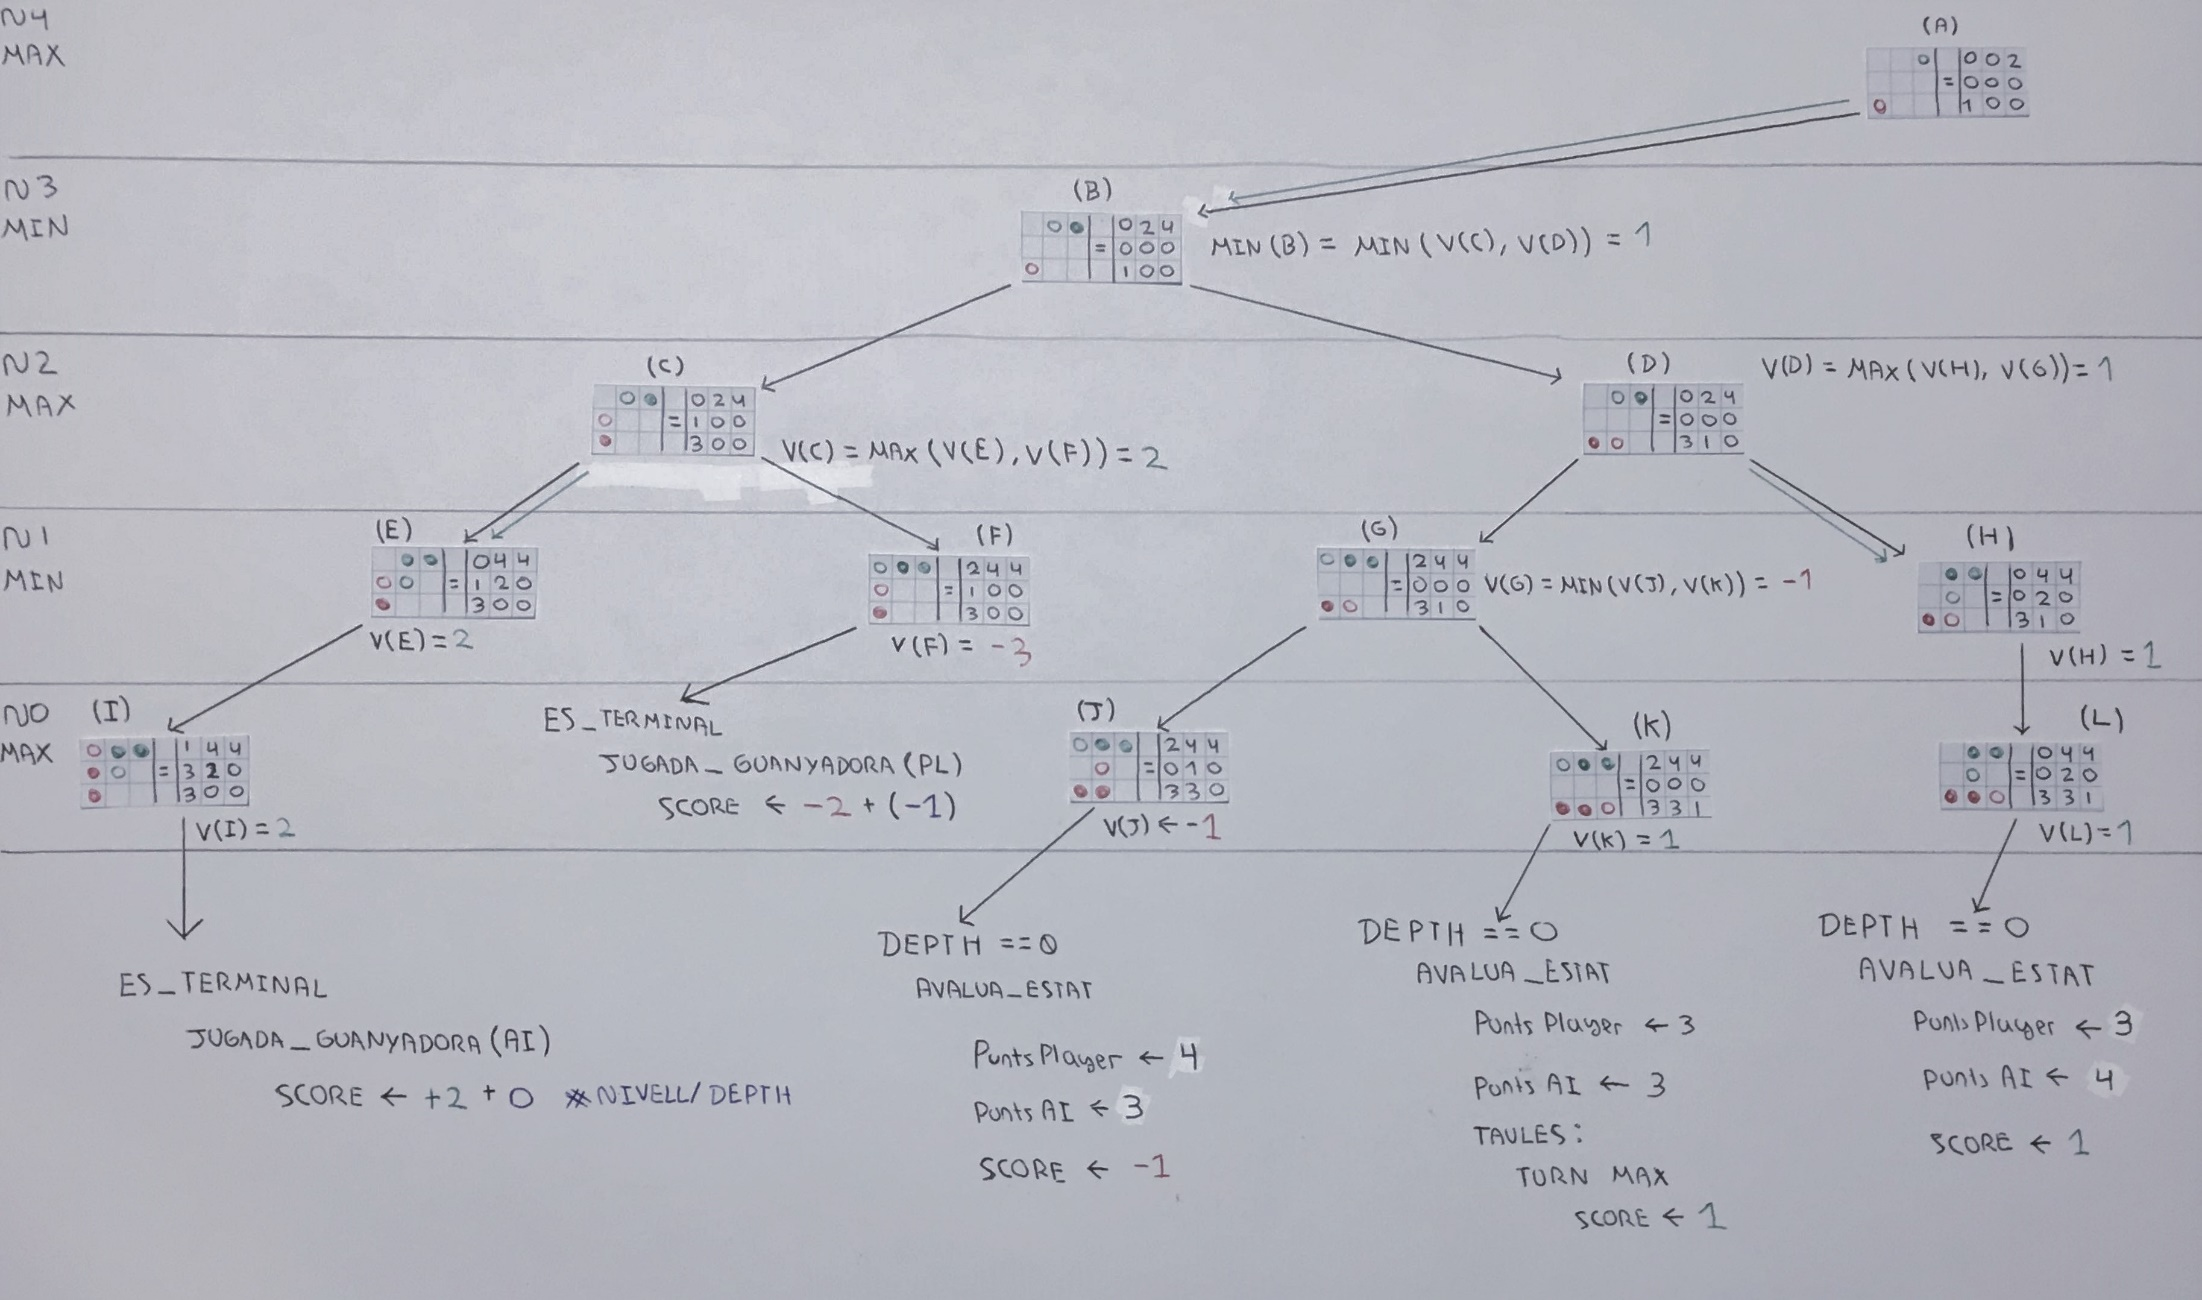 N4
MAX
(A)
0 0 2
= 0 0 0
1 0 0
N3
MIN
(B)
0 2 4
= 0 0 0
1 0 0
MIN(B) = MIN(V(C), V(D)) = 1
N2
MAX
(C)
0 2 4
= 1 0 0
3 0 0
V(C) = MAX(V(E), V(F)) = 2
(D)
0 2 4
= 0 0 0
3 1 0
V(D) = MAX(V(H), V(G)) = 1
N1
MIN
(E)
0 4 4
= 1 2 0
3 0 0
V(E) = 2
(F)
2 4 4
= 1 0 0
3 0 0
V(F) = -3
(G)
2 4 4
= 0 0 0
3 1 0
V(G) = MIN(V(J), V(K)) = -1
(H)
0 4 4
= 0 2 0
3 1 0
V(H) = 1
N0
MAX
(I)
1 4 4
= 3 2 0
3 0 0
V(I) = 2
ES_TERMINAL
JUGADA_GUANYADORA(PL)
SCORE ← -2 + (-1)
(J)
2 4 4
= 0 1 0
3 3 0
V(J) ← -1
(K)
2 4 4
= 0 0 0
3 3 1
V(K) = 1
(L)
0 4 4
= 0 2 0
3 3 1
V(L) = 1
ES_TERMINAL
JUGADA_GUANYADORA(AI)
SCORE ← +2 + 0 *NIVELL/DEPTH
DEPTH == 0
AVALUA_ESTAT
Punts Player ← 4
Punts AI ← 3
SCORE ← -1
DEPTH == 0
AVALUA_ESTAT
Punts Player ← 3
Punts AI ← 3
TAULES:
TURN MAX
SCORE ← 1
DEPTH == 0
AVALUA_ESTAT
Punts Player ← 3
Punts AI ← 4
SCORE ← 1